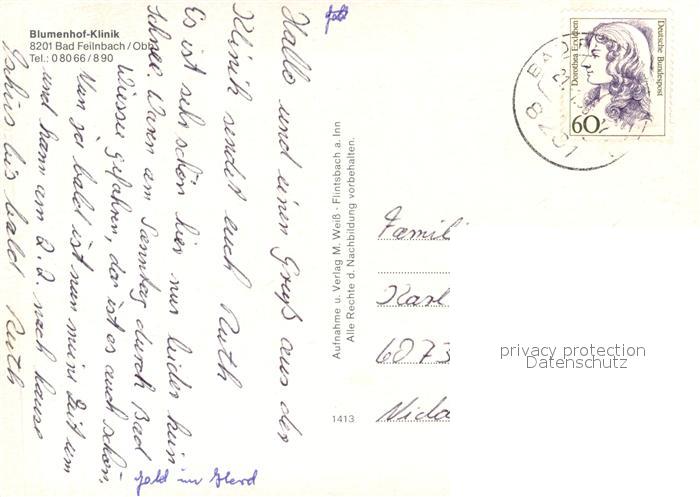 Blumenhof-Klinik
8201 Bad Feilnbach / Obb.
Tel.: 0 80 66 / 8 90
Hallo und einen Gruß aus der
Klinik sendet euch Ruth
Es ist sehr schön hier nur leider kein
Schnee. Waren am Sonntag durch Bad
Wiessee gefahren, dar ist es auch schön.
Nun ja bald ist nun meine Zeit um
und kann am 2. 2. nach hause
Tschüs bis bald Ruth
Aufnahme u. Verlag M. Weiß · Flintsbach a. Inn
Alle Rechte d. Nachbildung vorbehalten.
1413
Deutsche Bundespost
Dorothea Erxleben
60
8201
Famili
Karl
6073
privacy protection
Datenschutz